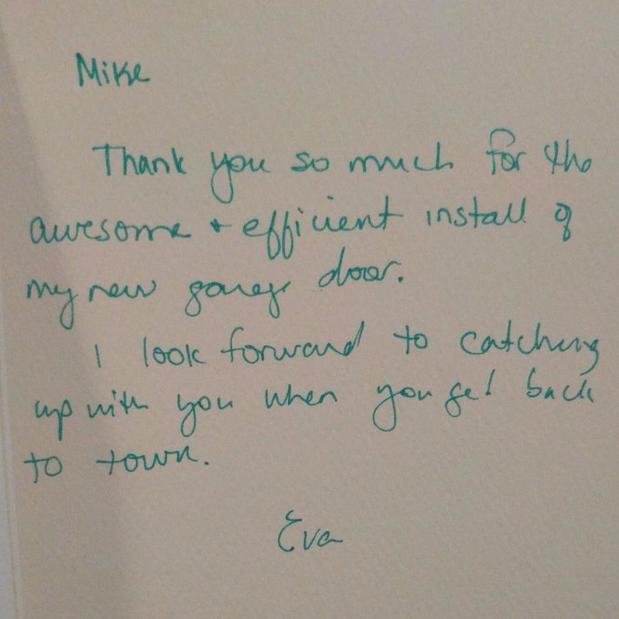 Mike
Thank you so much for the
awesome + efficient install of
my new garage door.
I look forward to catching
up with you when you get back
to town.
Eva